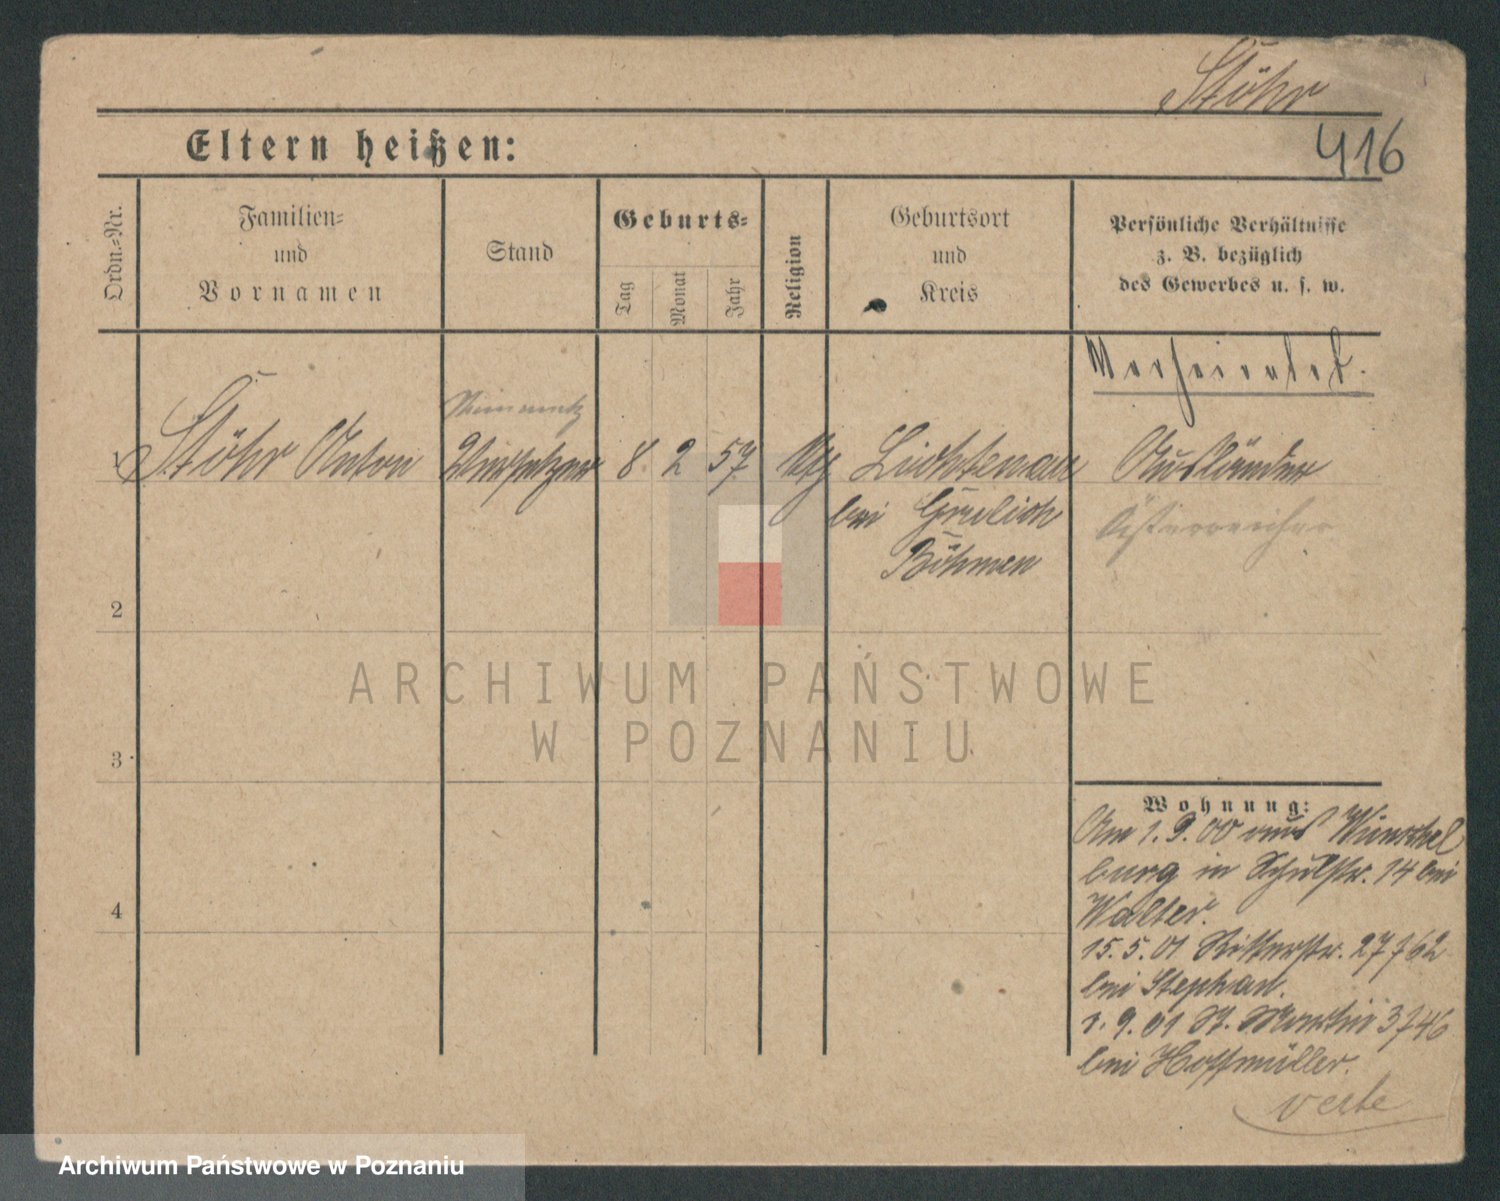 Stöhr
416
Eltern heißen:
Ordn.-Nr.
Familien-
und
Vornamen
Stand
Geburts-
Tag
Monat
Jahr
Religion
Geburtsort
und
Kreis
Persönliche Verhältnisse
z. B. bezüglich
des Gewerbes u. s. w.
Verheiratet.
1
Stöhr Anton
8 2 57
Lichtenau
bei Grulich
Böhmen
Ausländer
Österreicher
2
3
4
Wohnung:
Am 1.9.00 aus Wünschel
burg in Schulstr. 14 bei
Walter.
15.5.01 Ritterstr. 27/62
bei Stephan.
1.9.01 St. Martin 3/46
bei Hoffmüller.
verte
ARCHIWUM PAŃSTWOWE
W POZNANIU
Archiwum Państwowe w Poznaniu